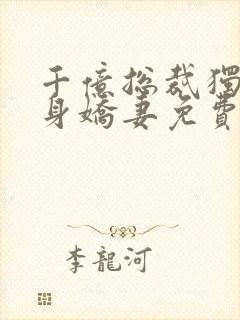 千億總裁獨
身嬌妻免費
李龍河